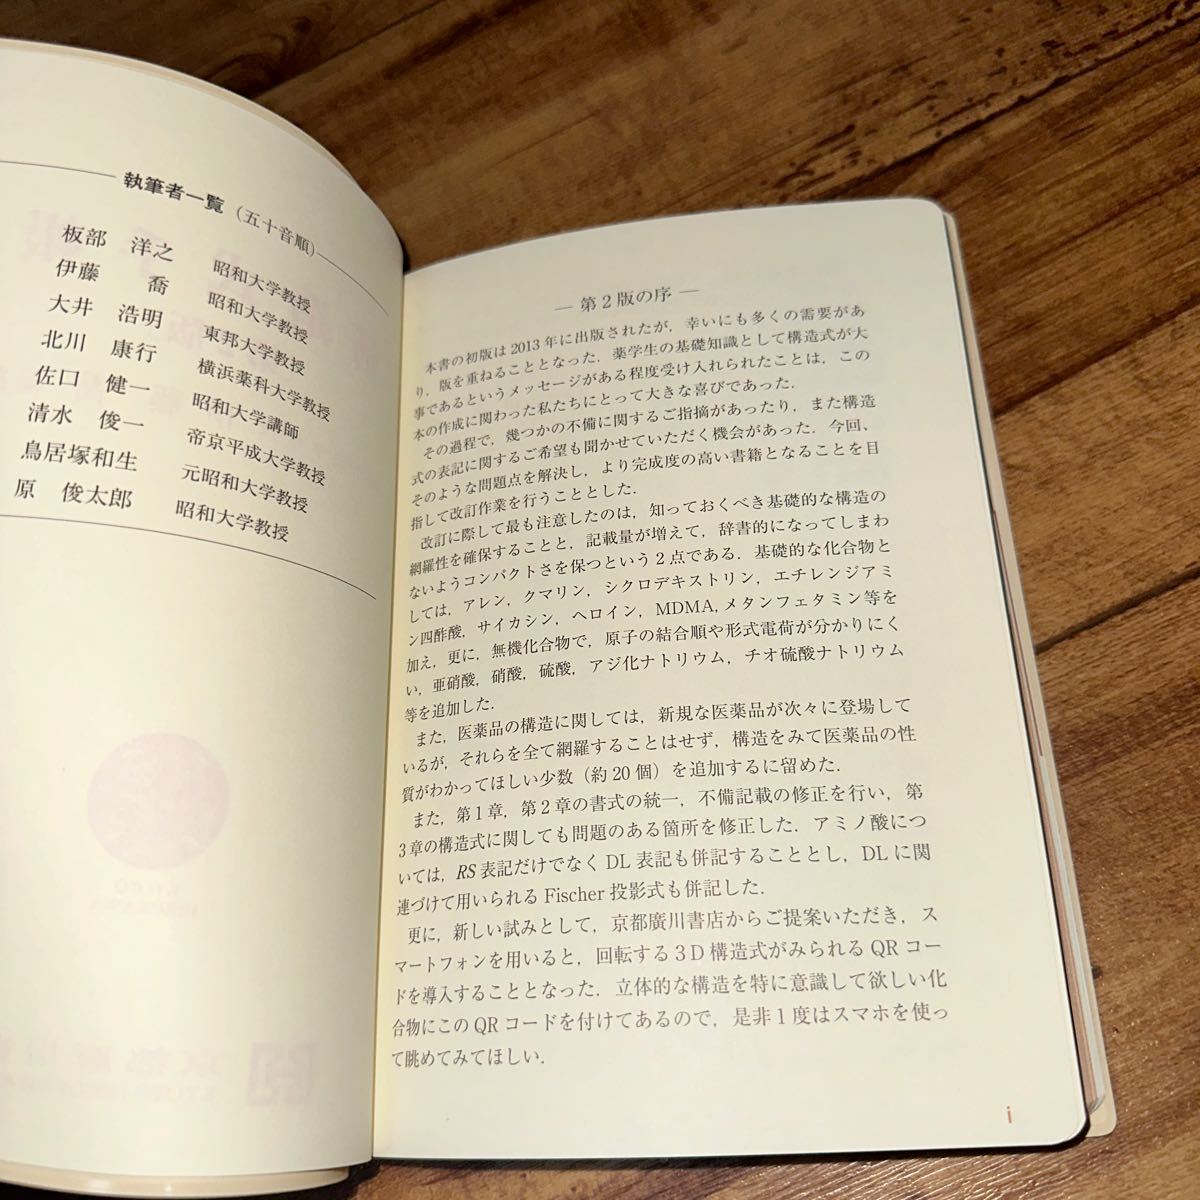 執筆者一覧（五十音順）
板部 洋之 昭和大学教授
伊藤 喬 昭和大学教授
大井 浩明 東邦大学教授
北川 康行 横浜薬科大学教授
佐口 健一 昭和大学講師
清水 俊一 帝京平成大学教授
鳥居塚和生 元昭和大学教授
原 俊太郎 昭和大学教授
― 第2版の序 ―
本書の初版は2013年に出版されたが，幸いにも多くの需要があ
り，版を重ねることとなった．薬学生の基礎知識として構造式が大
事であるというメッセージがある程度受け入れられたことは，この
本の作成に関わった私たちにとって大きな喜びであった．
その過程で，幾つかの不備に関するご指摘があったり，また構造
式の表記に関するご希望も聞かせていただく機会があった．今回，
そのような問題点を解決し，より完成度の高い書籍となることを目
指して改訂作業を行うこととした．
改訂に際して最も注意したのは，知っておくべき基礎的な構造の
網羅性を確保することと，記載量が増えて，辞書的になってしまわ
ないようコンパクトさを保つという2点である．基礎的な化合物と
しては，アレン，クマリン，シクロデキストリン，エチレンジアミ
ン四酢酸，サイカシン，ヘロイン，MDMA，メタンフェタミン等を
加え，更に，無機化合物で，原子の結合順や形式電荷が分かりにく
い，亜硝酸，硝酸，硫酸，アジ化ナトリウム，チオ硫酸ナトリウム
等を追加した．
また，医薬品の構造に関しては，新規な医薬品が次々に登場して
いるが，それらを全て網羅することはせず，構造をみて医薬品の性
質がわかってほしい少数（約20個）を追加するに留めた．
また，第1章，第2章の書式の統一，不備記載の修正を行い，第
3章の構造式に関しても問題のある箇所を修正した．アミノ酸につ
いては，RS表記だけでなくDL表記も併記することとし，DLに関
連づけて用いられるFischer投影式も併記した．
更に，新しい試みとして，京都廣川書店からご提案いただき，ス
マートフォンを用いると，回転する3D構造式がみられるQRコー
ドを導入することとなった．立体的な構造を特に意識して欲しい化
合物にこのQRコードを付けてあるので，是非1度はスマホを使っ
て眺めてみてほしい．
i